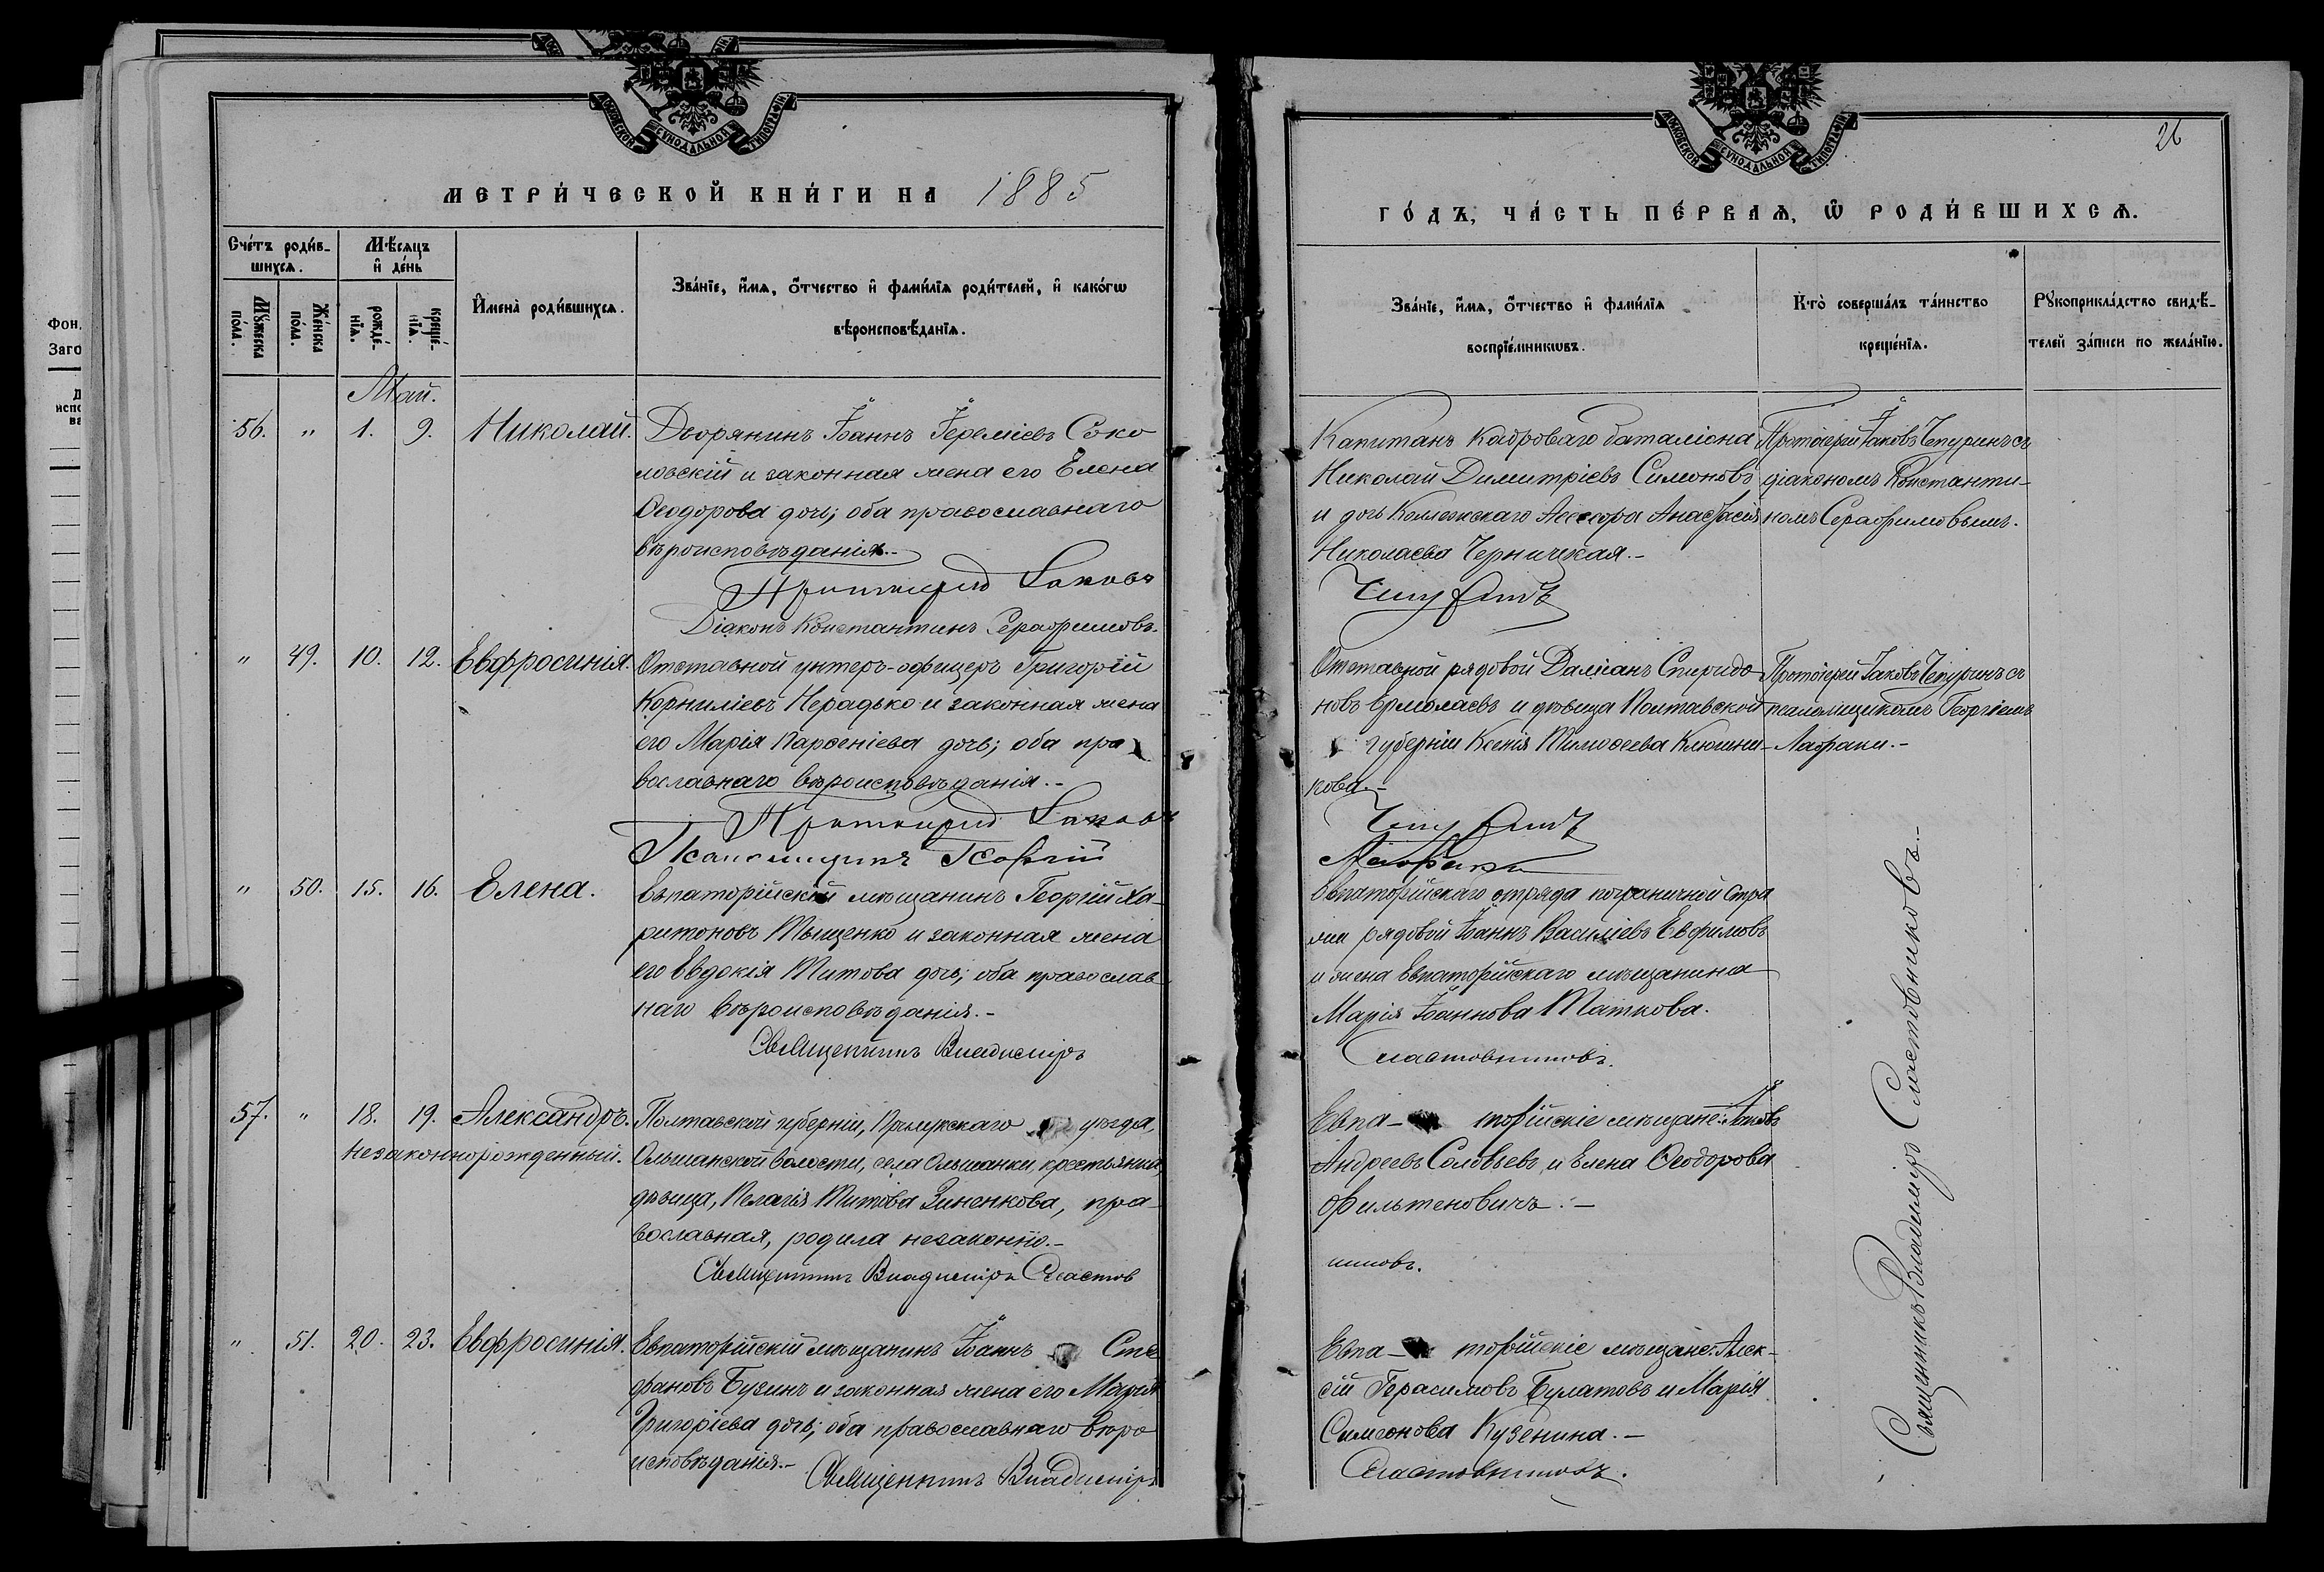 МЕТРИ́ЧЕСКОЙ КНИ́ГИ НА 1885
Сче́тъ роди́в-
шихсѧ.
Мѣ́сѧцъ
и҆ де́нь
Мꙋ́жеска по́ла.
Же́нска по́ла.
рожде́-
нїѧ.
креще́-
нїѧ.
И҆мена̀ роди́вшихсѧ.
Зва́нїе, и҆́мѧ, ѻ҆́тчество и҆ фами́лїѧ роди́телей, и҆ како́гѡ
вѣроисповѣ́данїѧ.
Май.
56. " 1. 9. Николай.
Дворянинъ Іоаннъ Іереміевъ Соко
ловскій и законная жена его Елена
Ѳеодорова дочь; оба православнаго
вѣроисповѣданія.-
Протоіерей Іаковъ
Діаконъ Константинъ Серафимовъ.
" 49. 10. 12. Евфросинія.
Отставной унтеръ-офицеръ Григорій
Корниліевъ Нерадько и законная жена
его Марія Парѳеніева дочь; оба пра
вославнаго вѣроисповѣданія.-
Протоіерей Іаковъ
Псаломщикъ Георгій
" 50. 15. 16. Елена.
Евпаторійскій мѣщанинъ Георгій Ха-
ритоновъ Тыщенко и законная жена
его Евдокія Титова дочь; оба православ-
наго вѣроисповѣданія.-
Священникъ Владиміръ
57. " 18. 19. Александръ.
незаконнорожденный.
Полтавской губерніи, Прилукскаго уѣзда,
Ольшанской волости, села Ольшанки, крестьянка
дѣвица, Пелагія Титова Зиненкова, пра-
вославная, родила незаконно.-
Священникъ Владиміръ Сластов
" 51. 20. 23. Евфросинія.
Евпаторійскій мѣщанинъ Іоаннъ Сте
фановъ Бузинъ и законная жена его Марія
Григоріева дочь; оба православнаго вѣро
исповѣданія.-
Священникъ Владиміръ
26
ГО́ДЪ, ЧА́СТЬ ПЕ́РВАѦ, Ѡ҆ РОДИ́ВШИХСѦ.
Зва́нїе, и҆́мѧ, ѻ҆́тчество и҆ фами́лїѧ
воспрїе́мникѡвъ.
Кто̀ соверша́лъ та́инство
креще́нїѧ.
Рꙋкоприкла́дство свидѣ́-
телей за́писи по жела́нїю.
Капитанъ кадроваго баталіона
Николай Димитріевъ Симоновъ
и дочь Коллежскаго Ассесора Анастасія
Николаева Черницкая.-
Чепуринъ
Протоіерей Іаковъ Чепуринъ съ
діакономъ Константи-
номъ Серафимовымъ.
Отставной рядовой Даміанъ Спиридо
новъ Ермолаевъ и дѣвица Полтавской
губерніи Ксенія Тимоѳеева Клюшни-
кова.-
Чепуринъ
Лафаки
Протоіерей Іаковъ Чепуринъ съ
псаломщикомъ Георгіемъ
Лафаки.-
Евпаторійскаго отряда пограничной стра
жи рядовой Іоаннъ Василіевъ Евфимовъ
и жена Евпаторійскаго мѣщанина
Марія Іоаннова Таткова.
Сластовниковъ.
Евпа- торійскіе мѣщане: Іаковъ
Андреевъ Соловьевъ и Елена Ѳеодорова
Фильтеновичъ.-
никовъ.
Евпа- торійскіе мѣщане: Алек-
сій Герасимовъ Булатовъ и Марія
Симеонова Кузенина.-
Сластовниковъ.
Священникъ Владиміръ Сластовниковъ.-